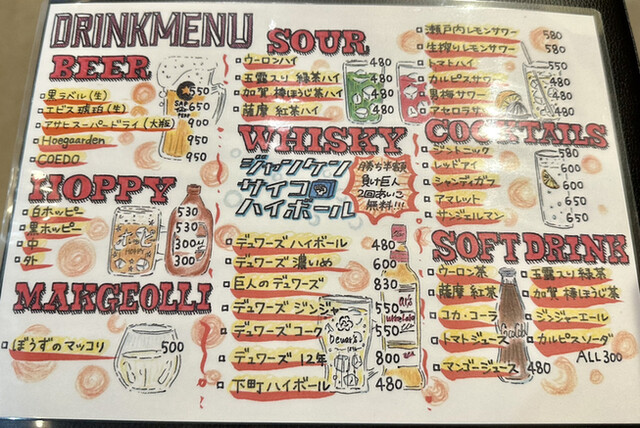 DRINKMENU
BEER
黒ラベル(生) 550
エビス 琥珀(生) 650
アサヒスーパードライ(大瓶) 900
Hoegaarden 950
COEDO 950
HOPPY
白ホッピー 530
黒ホッピー 530
中 300
外 300
MAKGEOLLI
ぼうずのマッコリ 500
SOUR
ウーロンハイ 480
玉露入り 緑茶ハイ 480
加賀 棒ほうじ茶ハイ 480
薩摩 紅茶ハイ 480
瀬戸内レモンサワー 580
生搾りレモンサワー 580
トマトハイ 550
カルピスサワー
男梅サワー
アセロラサワー
WHISKY
ジャンケン
サイコロ
ハイボール
勝ち半額
負け巨人
無料!!!
デュワーズ ハイボール 480
デュワーズ 濃いめ 600
巨人のデュワーズ 830
デュワーズ ジンジャー 550
デュワーズ コーク 550
デュワーズ 12年 800
下町ハイボール 480
Dewar's
COCKTAILS
ジントニック 580
レッドアイ 600
シャンディガフ
アマレット
サンジェルマン 650
SOFT DRINK
ウーロン茶
薩摩 紅茶
コカ・コーラ
トマトジュース
マンゴージュース 480
玉露入り 緑茶
加賀 棒ほうじ茶
ジンジャーエール
カルピスソーダ
ALL 300